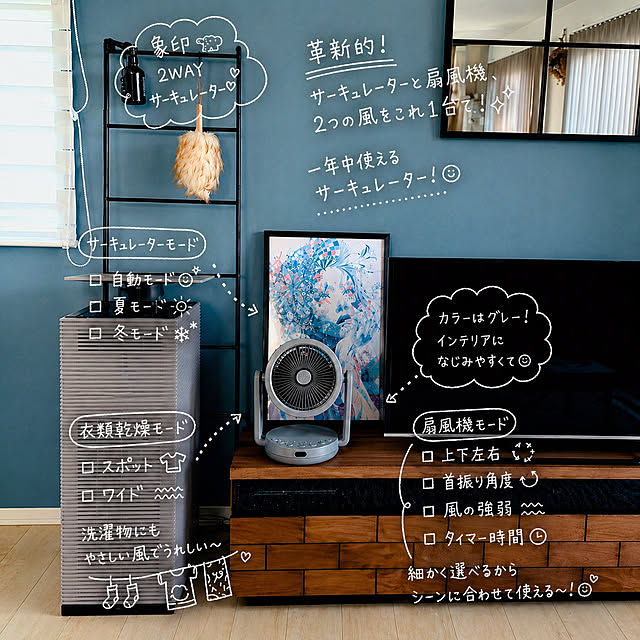 象印
2WAY
サーキュレーター
革新的!
サーキュレーターと扇風機、
2つの風をこれ1台で!
一年中使える
サーキュレーター!
サーキュレーターモード
自動モード
夏モード
冬モード
カラーはグレー!
インテリアに
なじみやすくて
衣類乾燥モード
スポット
ワイド
洗濯物にも
やさしい風でうれしい〜
扇風機モード
上下左右
首振り角度
風の強弱
タイマー時間
細かく選べるから
シーンに合わせて使える〜!